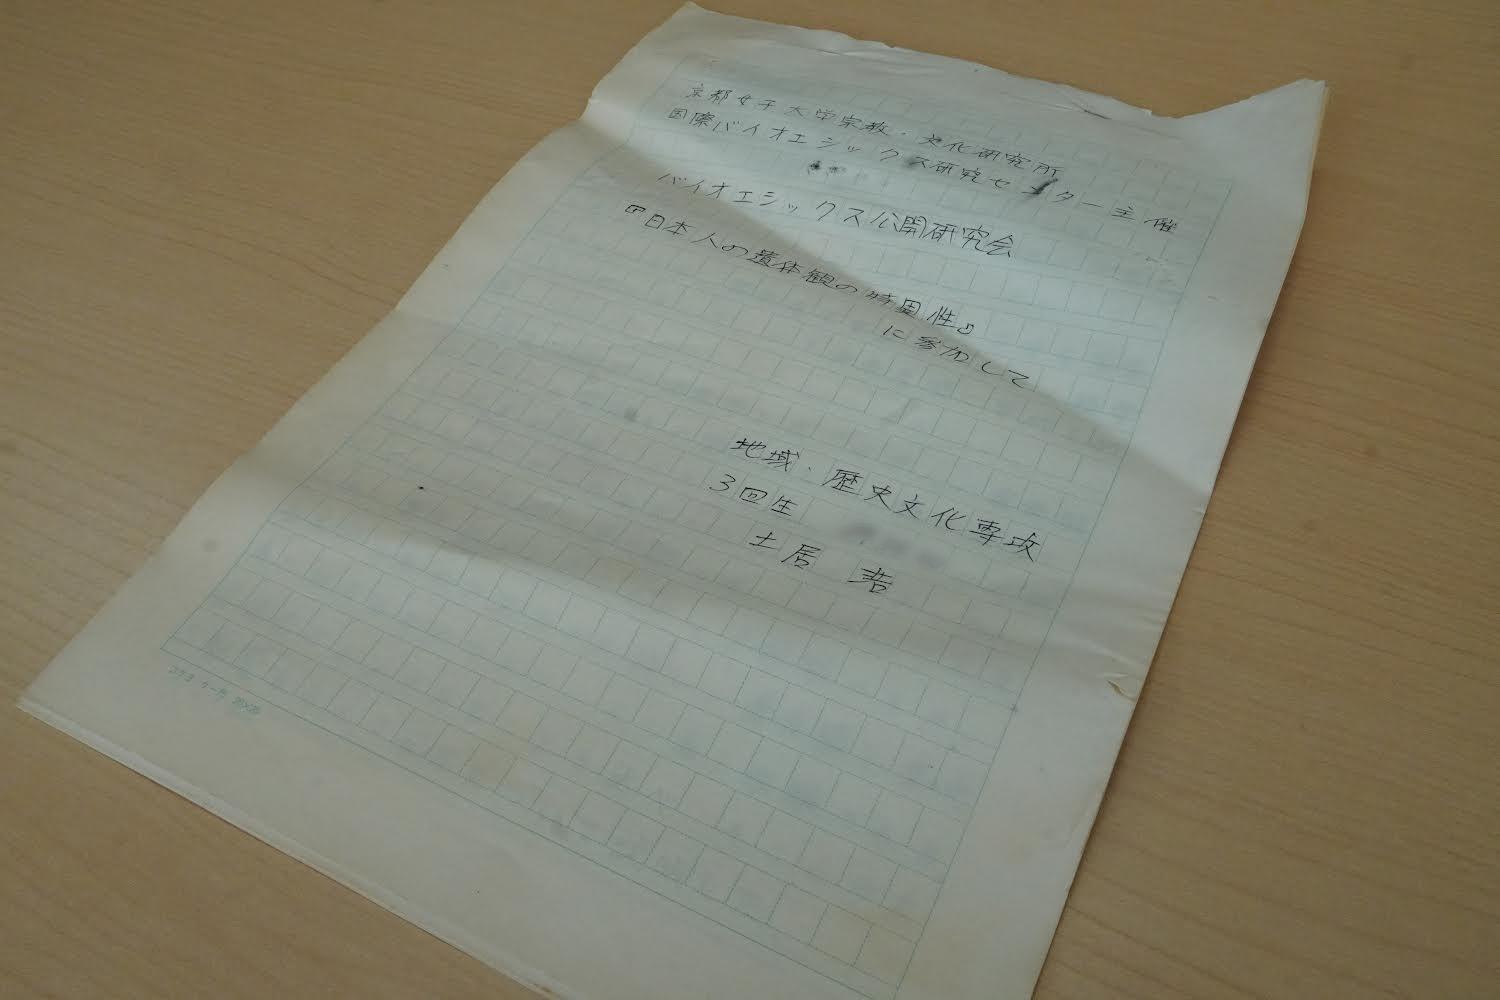 京都女子大学宗教・文化研究所
国際バイオエシックス研究センター主催
バイオエシックス公開研究会
『日本人の遺体観の特異性』
に参加して
地域・歴史文化専攻
3回生
土居 浩
コクヨ ケ-35 20×20